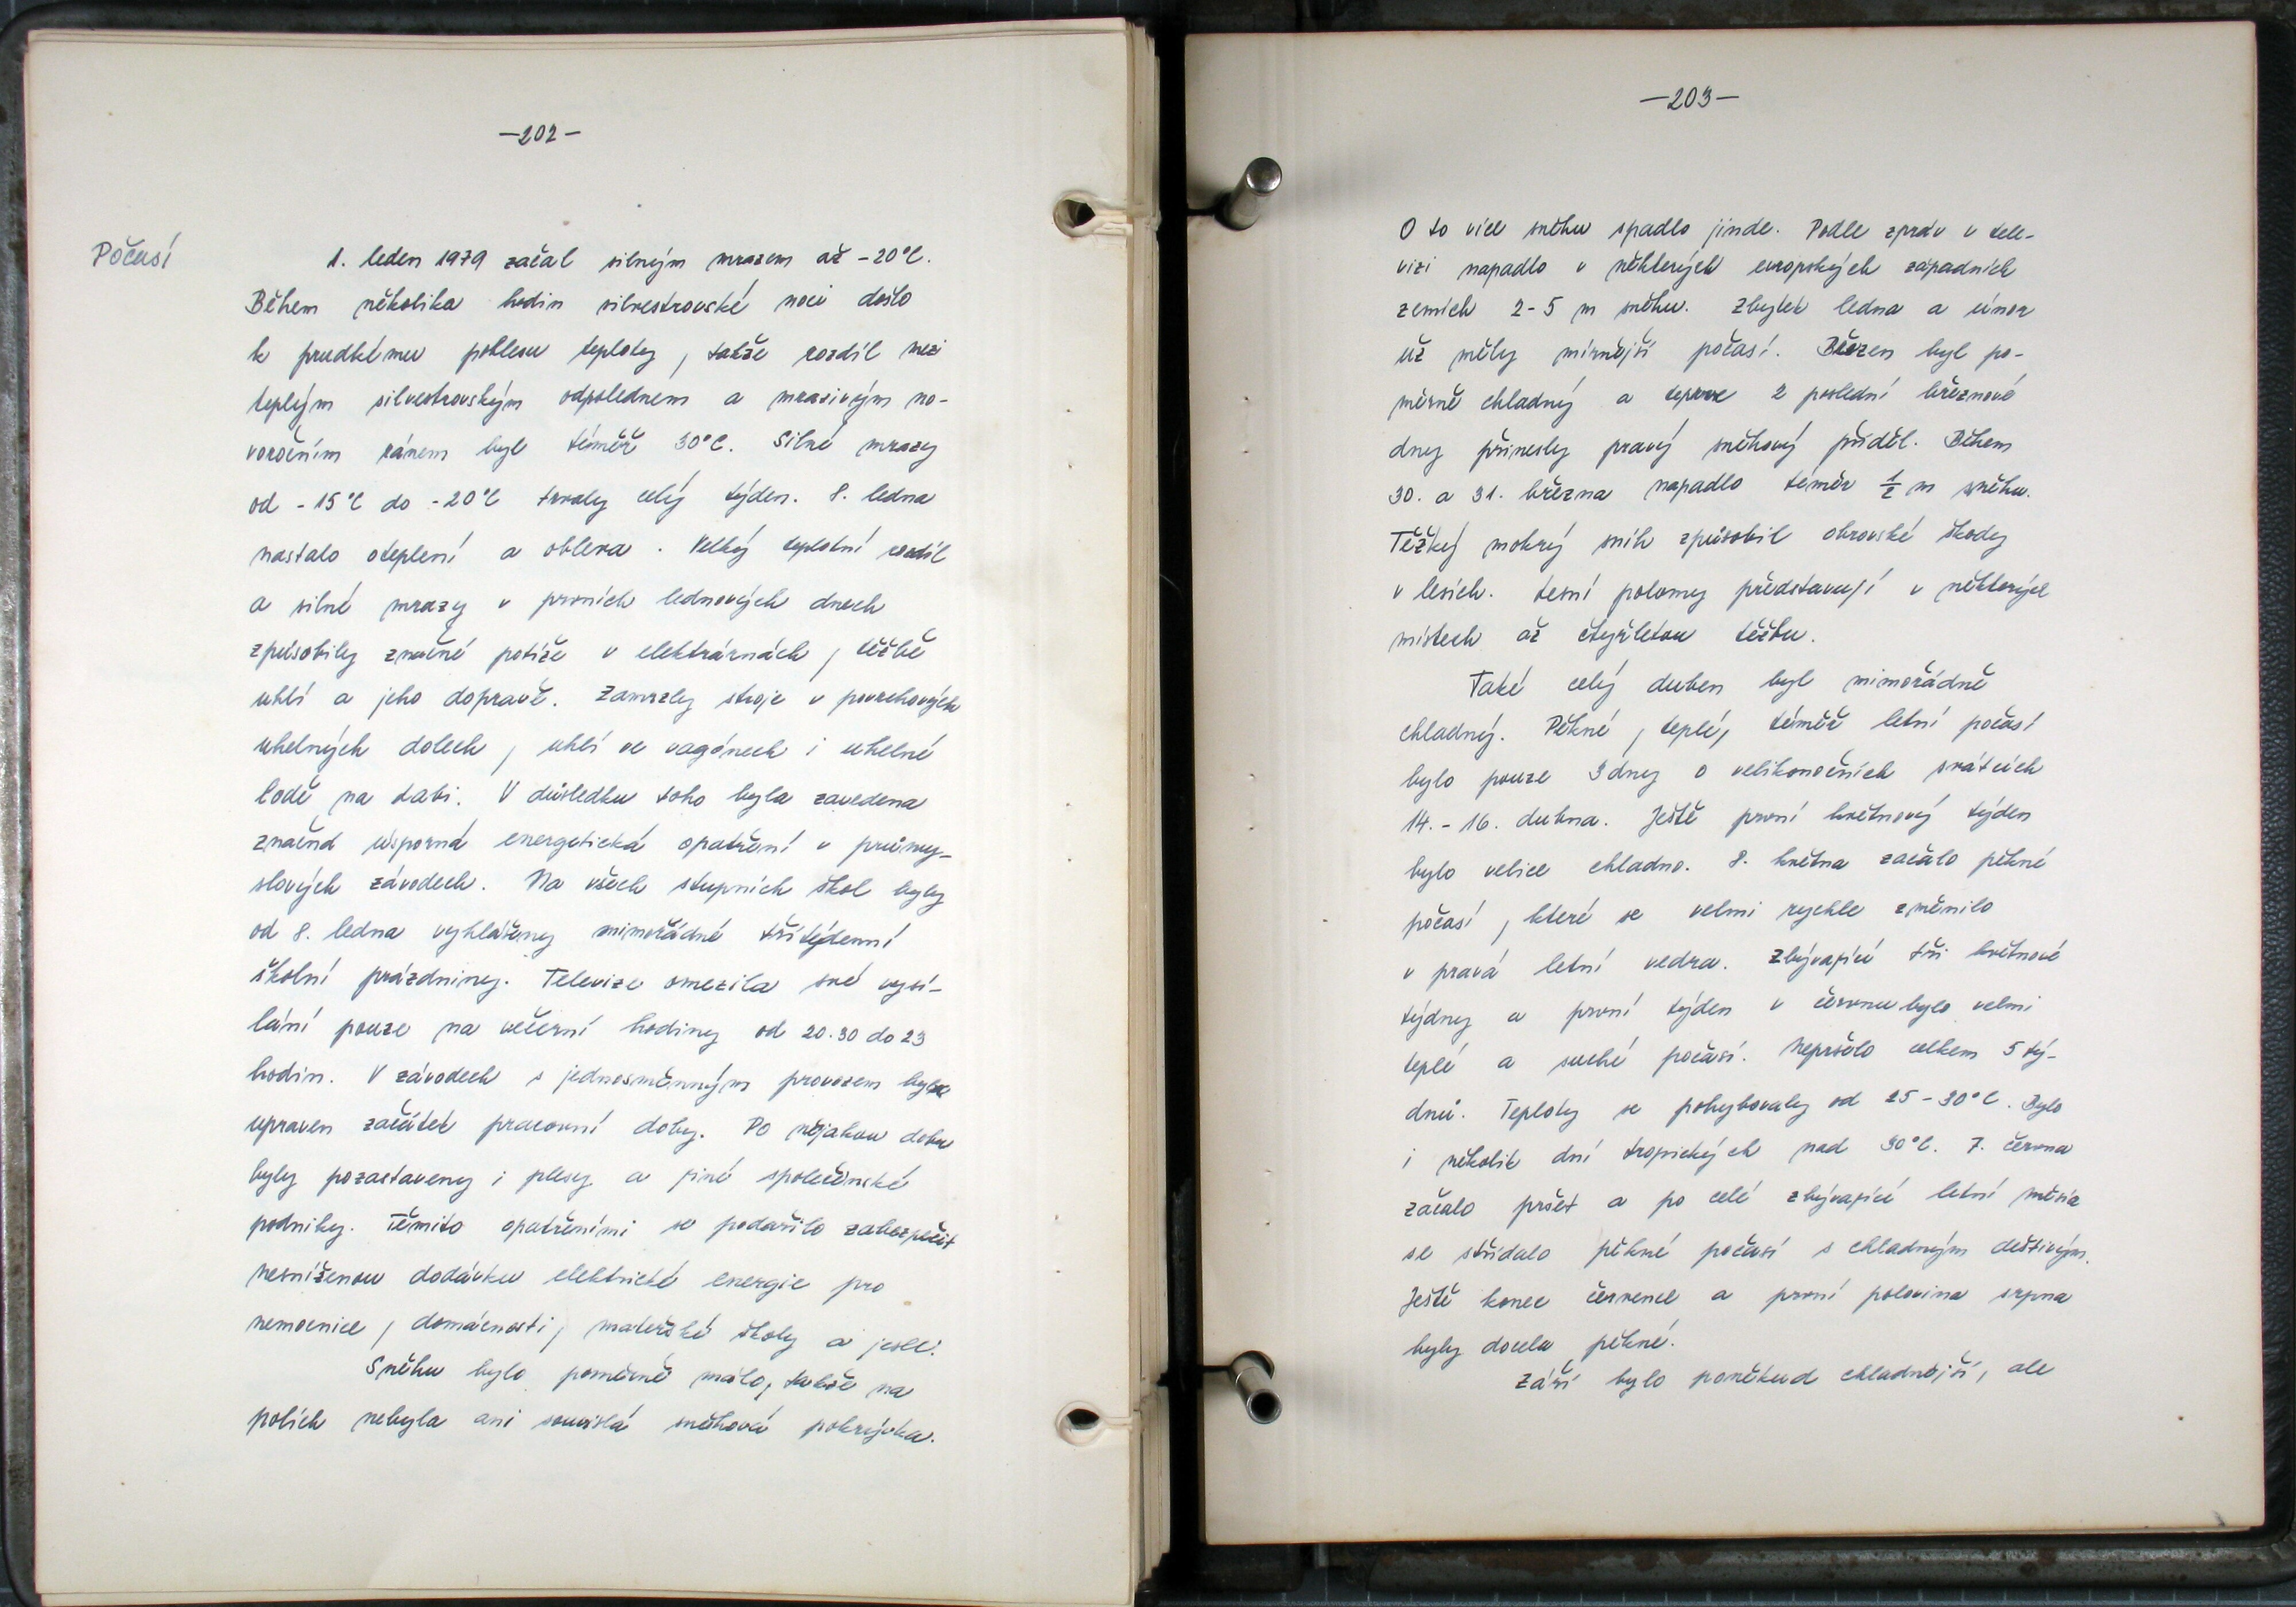 —202—
Počasí
1. leden 1979 začal silným mrazem až -20°C.
Během několika hodin silvestrovské noci došlo
k prudkému poklesu teploty, takže rozdíl mezi
teplým silvestrovským odpolednem a mrazivým no-
voročním ránem byl téměř 30°C. Silné mrazy
od -15°C do -20°C trvaly celý týden. 8. ledna
nastalo oteplení a obleva. Velký teplotní rozdíl
a silné mrazy v prvních lednových dnech
způsobily značné potíže v elektrárnách, těžbě
uhlí a jeho dopravě. Zamrzly stroje v povrchových
uhelných dolech, uhlí ve vagónech i uhelné
lodě na Labi. V důsledku toho byla zavedena
značná úsporná energetická opatření v průmy-
slových závodech. Na všech stupních škol byly
od 8. ledna vyhlášeny mimořádné třítýdenní
školní prázdniny. Televize omezila své vysí-
lání pouze na večerní hodiny od 20.30 do 23
hodin. V závodech s jednosměnným provozem byl
upraven začátek pracovní doby. Po nějakou dobu
byly pozastaveny i plesy a jiné společenské
podniky. Těmito opatřeními se podařilo zabezpečit
nesníženou dodávku elektrické energie pro
nemocnice, domácnosti, mateřské školy a jesle.
Sněhu bylo poměrně málo, takže na
polích nebyla ani souvislá sněhová pokrývka.
—203—
O to více sněhu spadlo jinde. Podle zpráv v tele-
vizi napadlo v některých evropských západních
zemích 2-5 m sněhu. Zbytek ledna a únor
už měly mírnější počasí. Březen byl po-
měrně chladný a teprve 2 poslední březnové
dny přinesly pravý sněhový příděl. Během
30. a 31. března napadlo téměr ½ m sněhu.
Těžký mokrý sníh způsobil obrovské škody
v lesích. Lesní polomy představují v některých
místech až čtyřletou těžbu.
Také celý duben byl mimořádně
chladný. Pěkné, teplé, téměř letní počasí
bylo pouze 3 dny o velikonočních svátcích
14. - 16. dubna. Ještě první květnový týden
bylo velice chladno. 8. května začalo pěkné
počasí, které se velmi rychle změnilo
v pravá letní vedra. Zbývající tři květnové
týdny a první týden v červnu bylo velmi
teplé a suché počasí. Nepršelo celkem 5 tý-
dnů. Teploty se pohybovaly od 25-30°C. Bylo
i několik dní tropických nad 30°C. 7. června
začalo pršet a po celé zbývající letní měsíce
se střídalo pěkné počasí s chladným deštivým.
Ještě konec července a první polovina srpna
byly docela pěkné.
Září bylo poněkud chladnější, ale